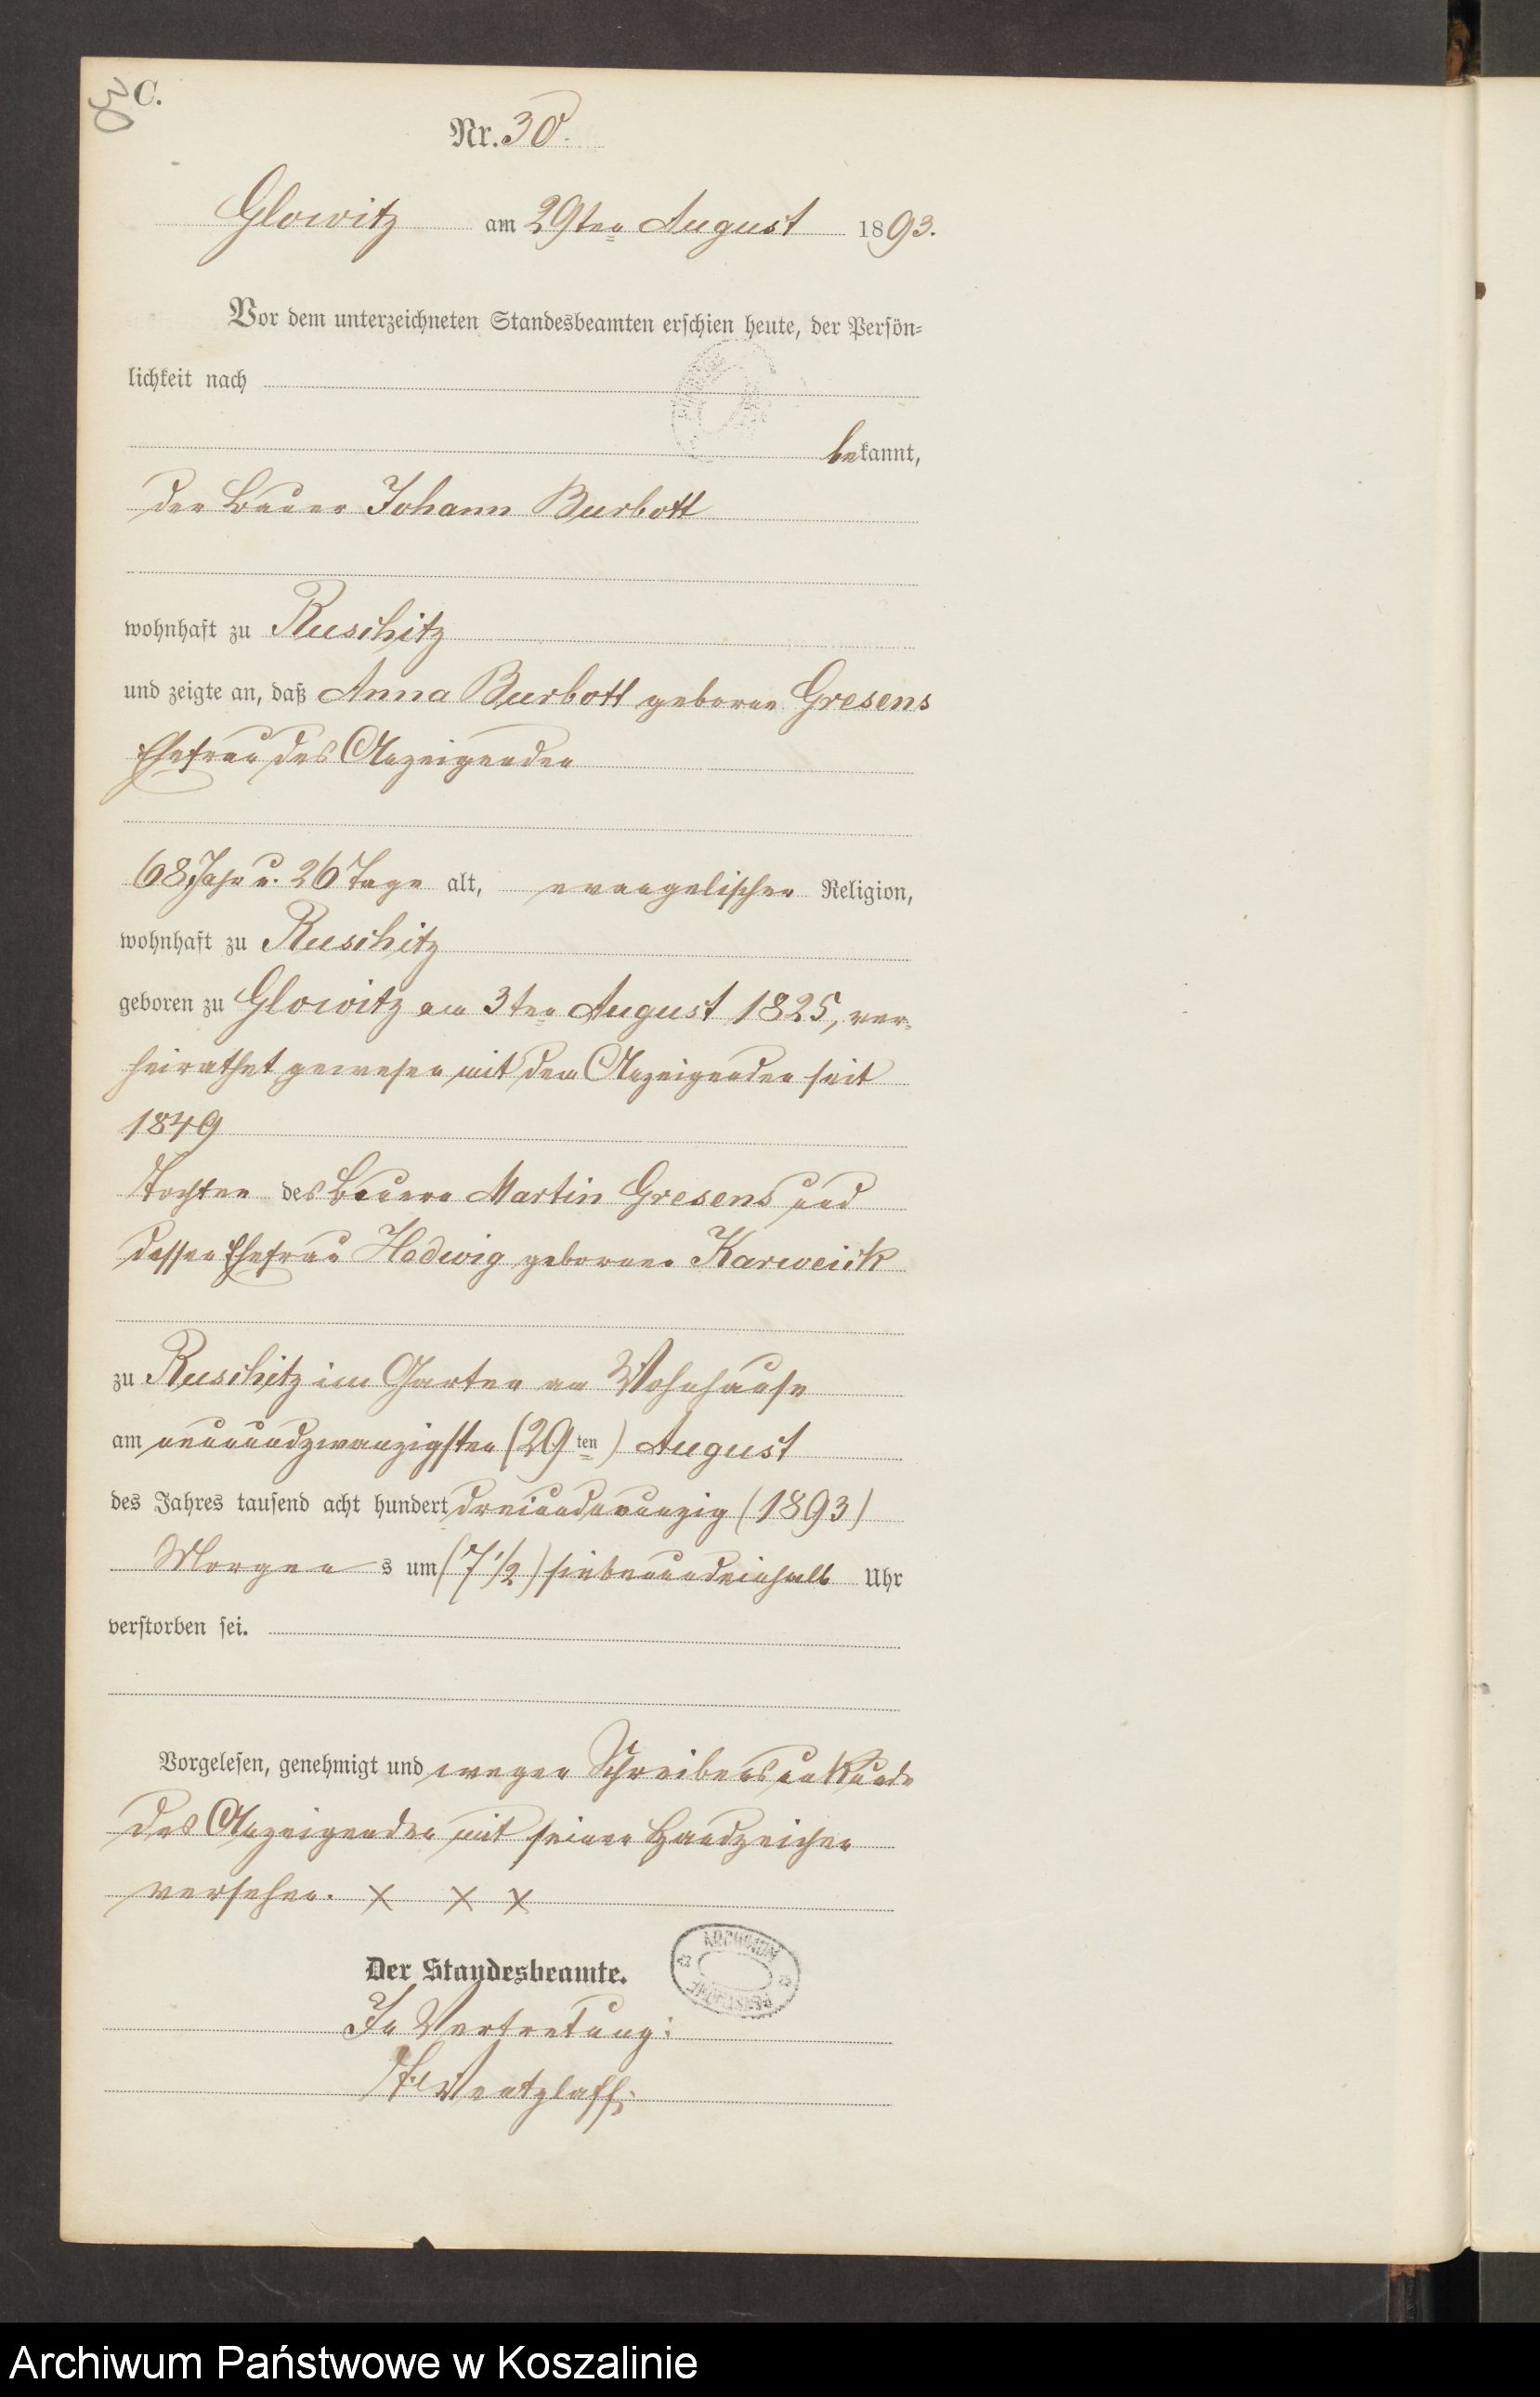 C.
30
Nr. 30.
Glowitz am 29ten August 1893.
Vor dem unterzeichneten Standesbeamten erschien heute, der Persön-
lichkeit nach
bekannt,
der Bauer Johann Burbott
wohnhaft zu Ruschitz
und zeigte an, daß Anna Burbott geborne Gresens
Ehefrau des Anzeigenden
68 Jahr u. 26 Tage alt, evangelischer Religion,
wohnhaft zu Ruschitz
geboren zu Glowitz am 3ten August 1825, ver-
heirathet gewesen mit dem Anzeigenden seit
1849
Tochter des Bauern Martin Gresens und
dessen Ehefrau Hedwig geborner Karweick
zu Ruschitz im Garten am Wohnhause
am neunundzwanzigsten (29ten) August
des Jahres tausend acht hundert dreiundneunzig (1893)
Morgens um (7 1/2) siebenundeinhalb Uhr
verstorben sei.
Vorgelesen, genehmigt und wegen Schreibensunkunde
des Anzeigenden mit seinen Handzeichen
versehen. X X X
Der Standesbeamte.
ARCHIWUM
PAŃSTWOWE
In Vertretung:
Wentzlaff.
Archiwum Państwowe w Koszalinie